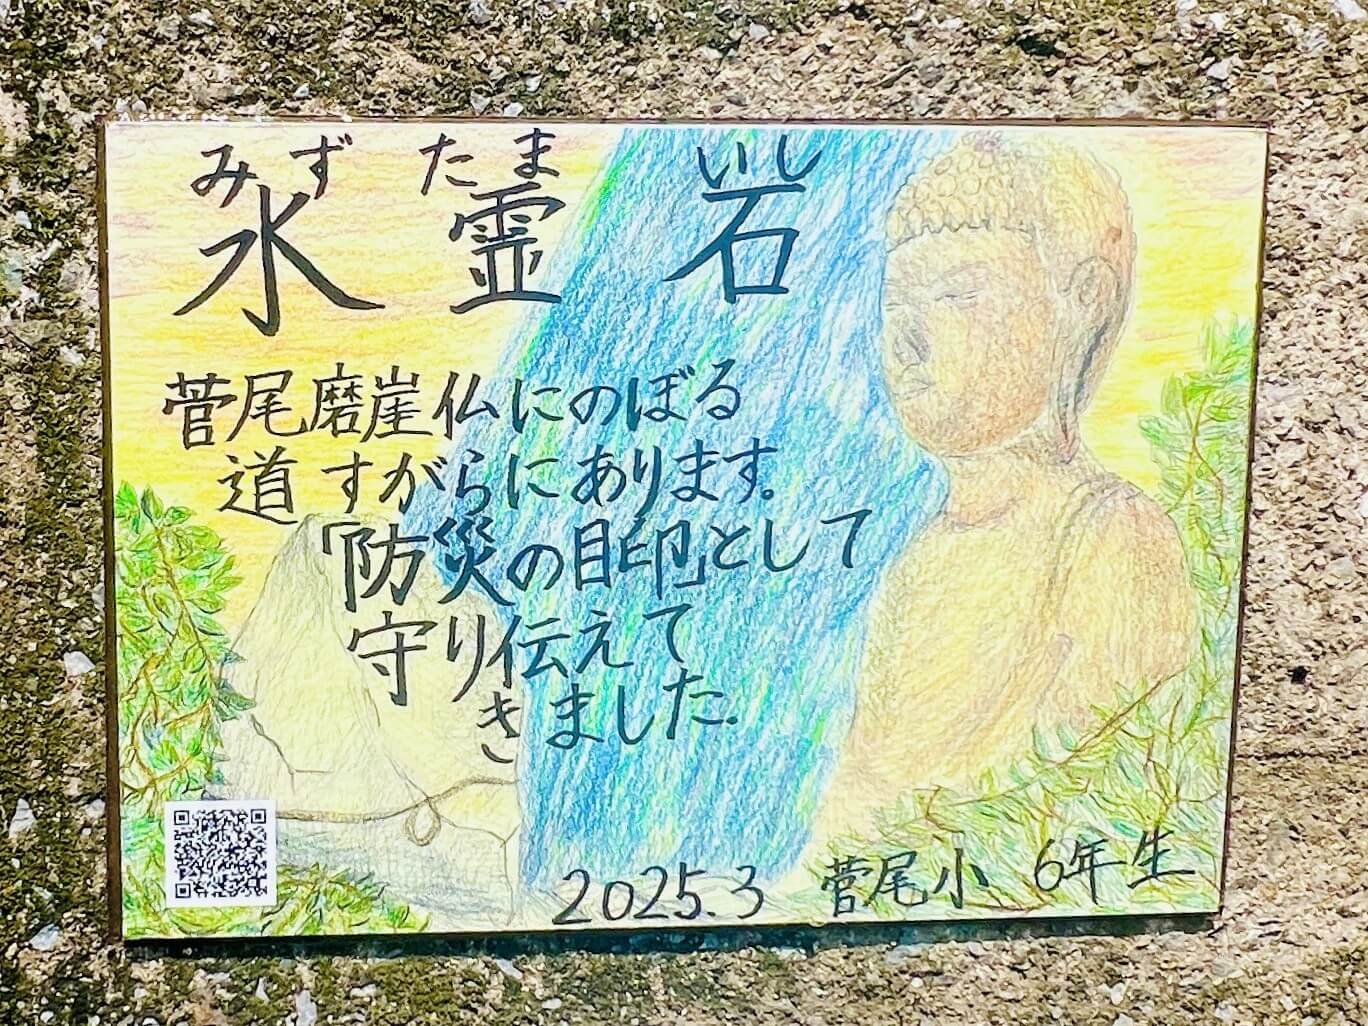 みず たま いし
水 霊 石
菅尾磨崖仏にのぼる
道すがらにあります。
「防災の目印」として
守り伝えて
きました。
2025.3 菅尾小 6年生